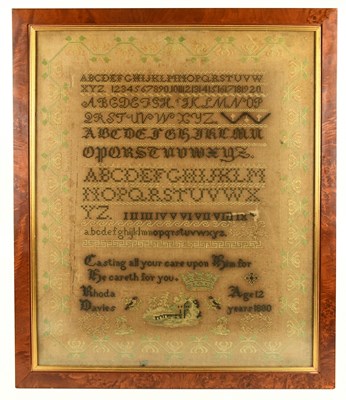 ABCDEFGHIJKLMNOPQRSTUVW
XYZ. 1234567891011121314151617181920.
ABCDEFGH.IKLMNOP
QRSTUVWXYZ.
ABCDEFGHIKLMN
OPQRSTUVWXYZ.
ABCDEFGHIJKLM
NOPQRSTUVWX
YZ.
abcdefghijklmnopqrstuvwxyz.
Casting all your care upon Him for
He careth for you.
Rhoda Age 12
Davies years 1890